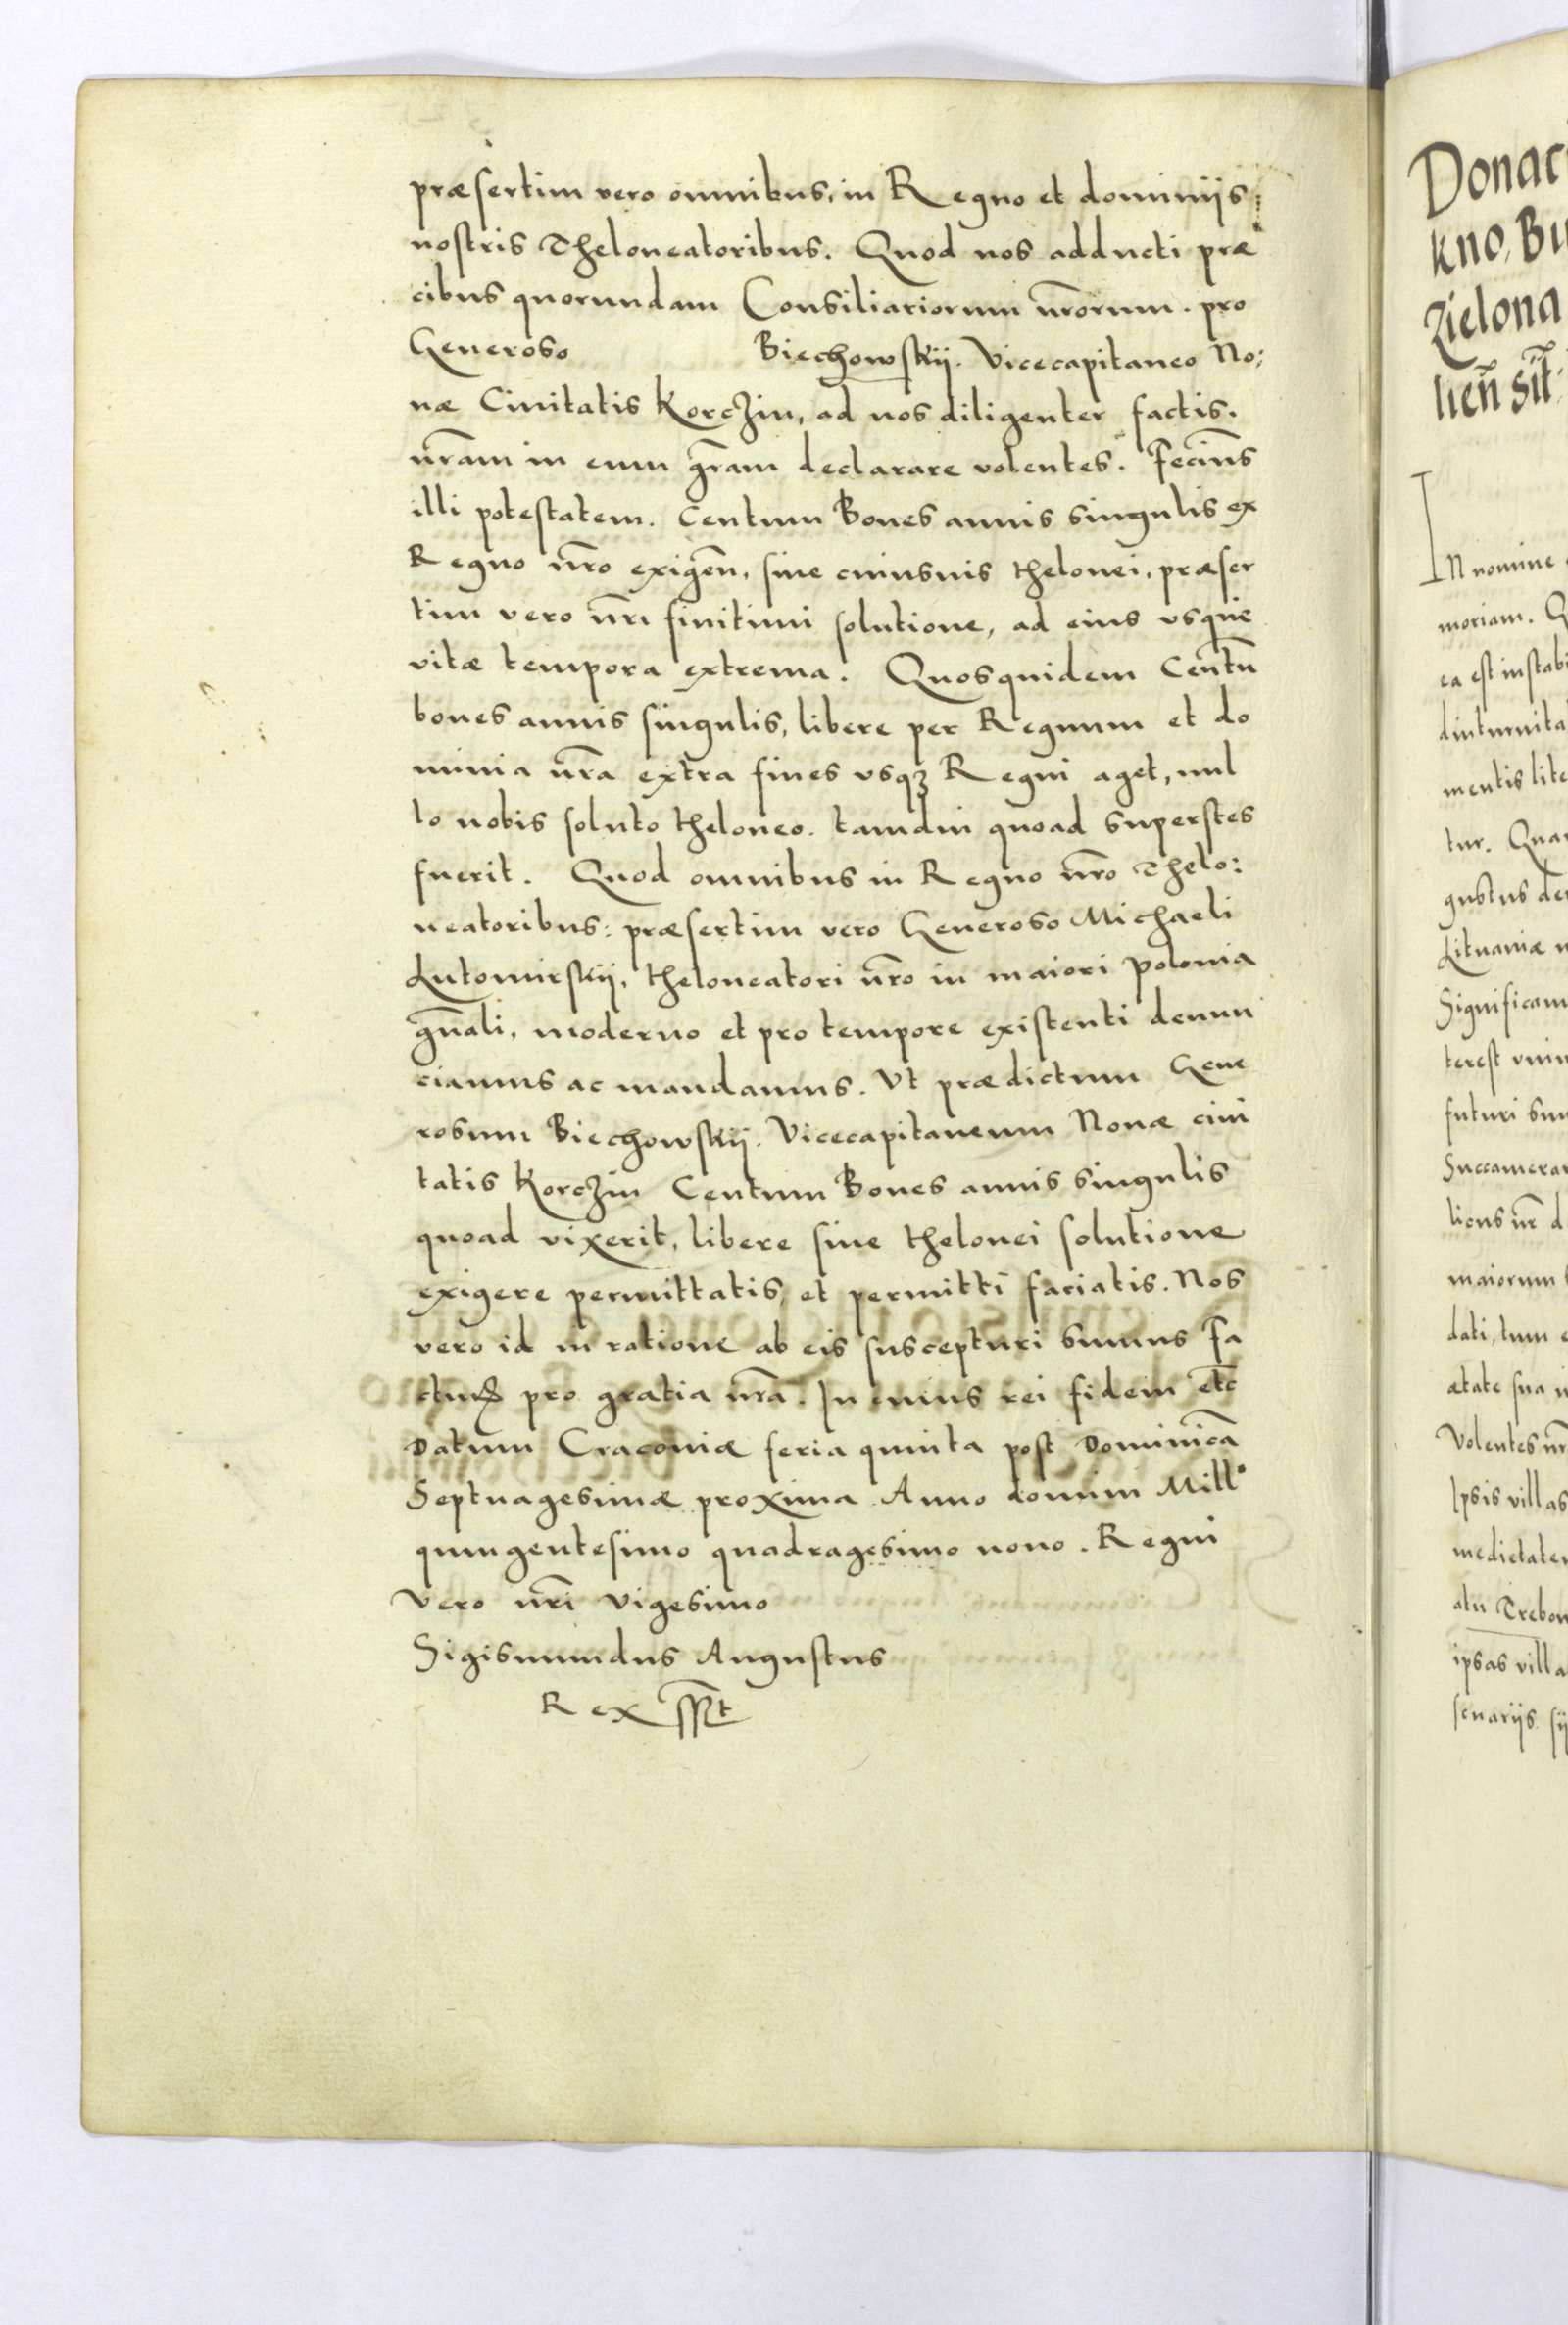 præsertim vero omnibus, in Regno et dominijs
nostris Theloneatoribus. Quod nos adducti præ
cibus quorundam Consiliariorum nr̃orum. pro
Generoso Biechowskij. Vicecapitaneo No:
uæ Ciuitatis Korczin, ad nos diligenter factis.
nr̃am in eum gr̃am declarare volentes. Fecim̃s
illi potestatem. Centum Boues annis singulis ex
Regno nr̃o exigeñ, sine cuiusuis thelonei, præser
tim vero nr̃i finitimi solutione, ad eius vsque
vitæ tempora extrema. Quosquidem Centũ
boues annis singulis, libere per Regnum et do
minia nr̃a extra fines vsqꝫ Regni aget, nul
lo nobis soluto theloneo. tamdiu quoad superstes
fuerit. Quod omnibus in Regno nr̃o Thelo:
neatoribus: præsertim vero Generoso Michaeli
Lutomirskij, theloneatori nr̃o in maiori Polonia
gñali, moderno et pro tempore existenti denun
ciamus ac mandamus. Vt prædictum Gene
rosum Biechowskij. Vicecapitaneum Nouæ ciui
tatis Korczin Centum Boues annis singulis
quoad vixerit, libere sine thelonei solutione
exigere permittatis, et permitti faciatis. Nos
vero id in ratione ab eis suscepturi sumus Fa
cturi pro gratia nr̃a. In cuius rei fidem etc̃
Datum Cracouiæ feria quinta post Dominicã
Septuagesimæ proxima Anno domini Mill°
quingentesimo quadragesimo nono. Regni
vero nr̃i vigesimo
Sigismundus Augustus
Rex sst
Donac
kno, Bu
Zielona
lieñ sit̃
IN nomine
moriam. Q
ea est instabi
diuturnita
mentis lite
tur. Qua
gustus de
Lituaniæ
Significam
terest vni
futuri su
Succamera
liens nr̃ d
maiorum
dati, tum
ætate sua
Volentes nr̃
Ipsis villas
medietate
atu Trebo
ipsas villa
senarijs